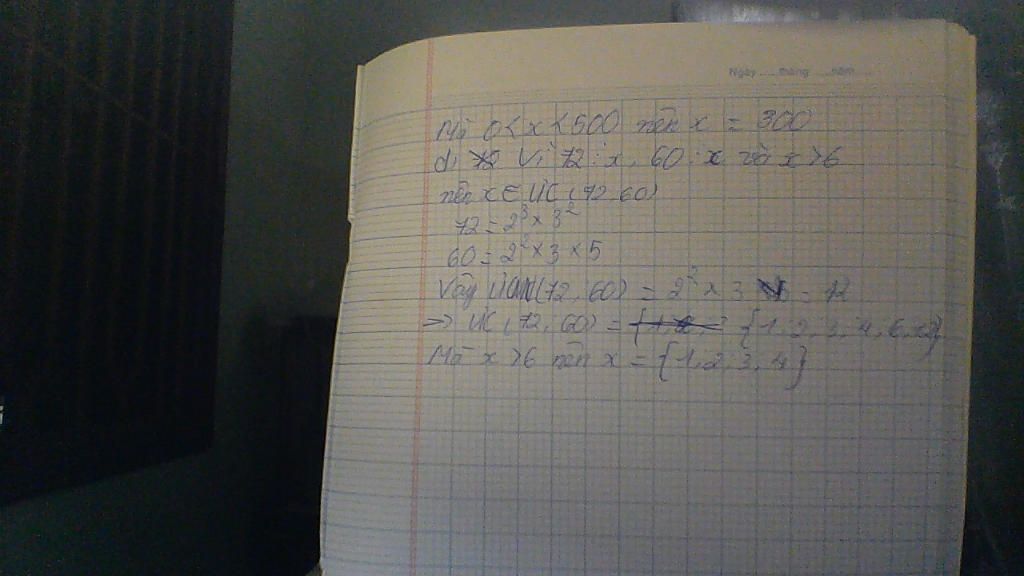 Ngày ..... tháng ..... năm .....
Mà 0 < x < 500 nên x = 300
d) 72 Vì 72 ⋮ x, 60 ⋮ x và x > 6
nên x ∈ ƯC (72, 60)
72 = 2³ × 3²
60 = 2² × 3 × 5
Vậy ƯCLN (72, 60) = 2² × 3 = 12
=> ƯC (72, 60) = {1, 2 {1, 2, 3, 4, 6, 12}
Mà x > 6 nên x = {1, 2, 3, 4}